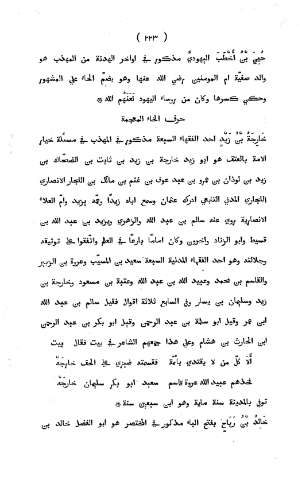 ( ٢٢٣ )
حُيَيّ بْنُ أَخْطَبَ اليهوديُّ مذكور فى اواخر الهدنة من المهذب هو
والد صفيّة ام المومنين رضى الله عنها وهو بضم الحاء على المشهور
وحكى كسرها وكان من روساء اليهود لعنهم الله ۞
حرف الخاء المعجمة
خَارِجَةُ بْنُ زَيْدٍ احد الفقهاء السبعة مذكور فى المهذب فى مسئلة خيار
الامة بالعتق هو ابو زيد خارجة بن زيد بن ثابت بن الضحاك بن
زيد بن لوذان بن عمرو بن عبد عوف بن غنم بن مالك بن النجار الانصارى
النجارى المدنى التابعى ادرك عثمان وسمع اباه زيدًا وعمّه يزيد وام العلاء
الانصارية روى عنه سالم بن عبد الله والزهرى ويزيد بن عبد الله بن
قسيط وابو الزناد وآخرون وكان اماما بارعًا فى العلم واتّفقوا على توثيقه
وجلالته وهو احد الفقهاء المدنية السبعة سعيد بن المسيّب وعروة بن الزبير
والقاسم بن محمد وعبيد الله بن عبد الله بن عتبة بن مسعود وخارجة بن
زيد وسليمان بن يسار وفى السابع ثلاثة اقوال فقيل سالم بن عبد الله
ابن عمر وقيل ابو سلمة بن عبد الرحمن وقيل ابو بكر بن عبد الرحمن
ابن الحارث بن هشام وعلى هذا جمعهم الشاعر فى بيت فقال بيت
ألا كلّ من لا يقتدى بأئمّة فقسمته ضيزى عن الحق خارجَه
فخذهم عبيد الله عروة قاسم سعيد ابو بكر سليمان خارجَه
توفى بالمدينة سنة ماية وهو ابن سبعين سنة ۞
خَالِدُ بْنُ رَبَاحٍ بفتح الباء مذكور فى المختصر هو ابو الفضل خالد بن